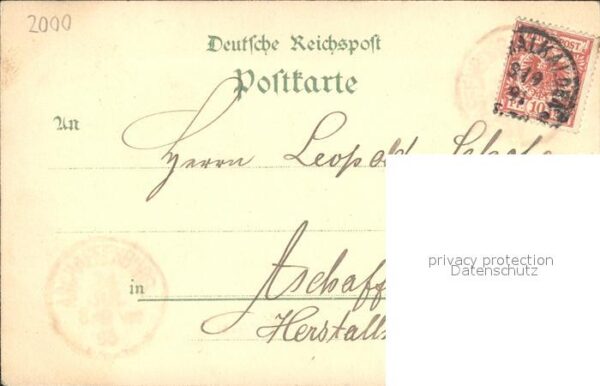 2000
Deutsche Reichspost
Postkarte
An
Herrn Leopold
in
Aschaff
Herstall
privacy protection
Datenschutz
PF. 10